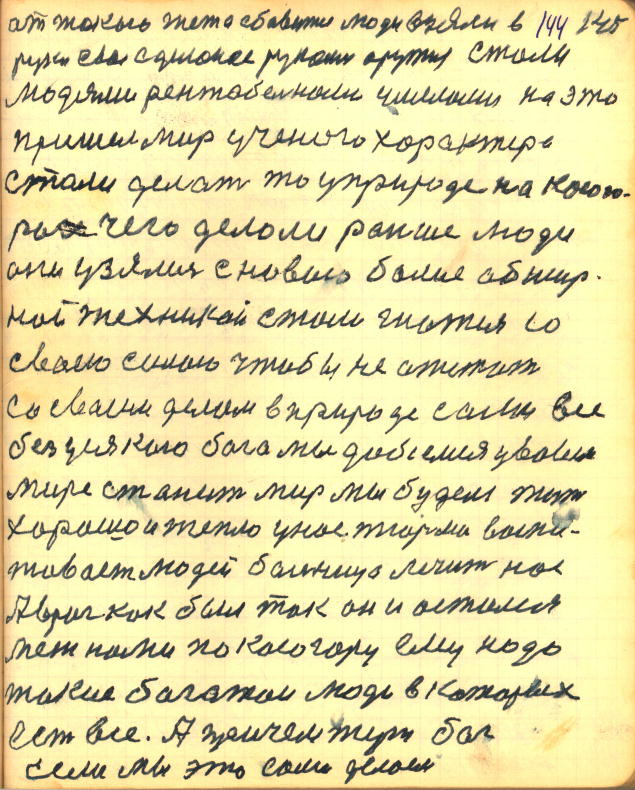 от такого жета збавити люди взяли в 144 145
руки свае сделоное руками оружия стали
людями рентабелноми умелыми на это
пришел мир ученого характера
стали делат то у природе на косого-
рах чего делоли ранше люди
они узялис с новаю болие обшир-
ной техникай стали гнатся со
сваею силою чтобы не отстат
со своеим делом в природе сами все
без усякого бога мы добемся у своем
мире станит мир мы будем жит
хорошо и тепло у нас тюрма воспи-
товает людей болница лечит нас
А враг как был так он и остался
меж нами по косогору ему надо
такие богатаи люди в каторых
ест все. А причем тут бог
если мы это сами делаем